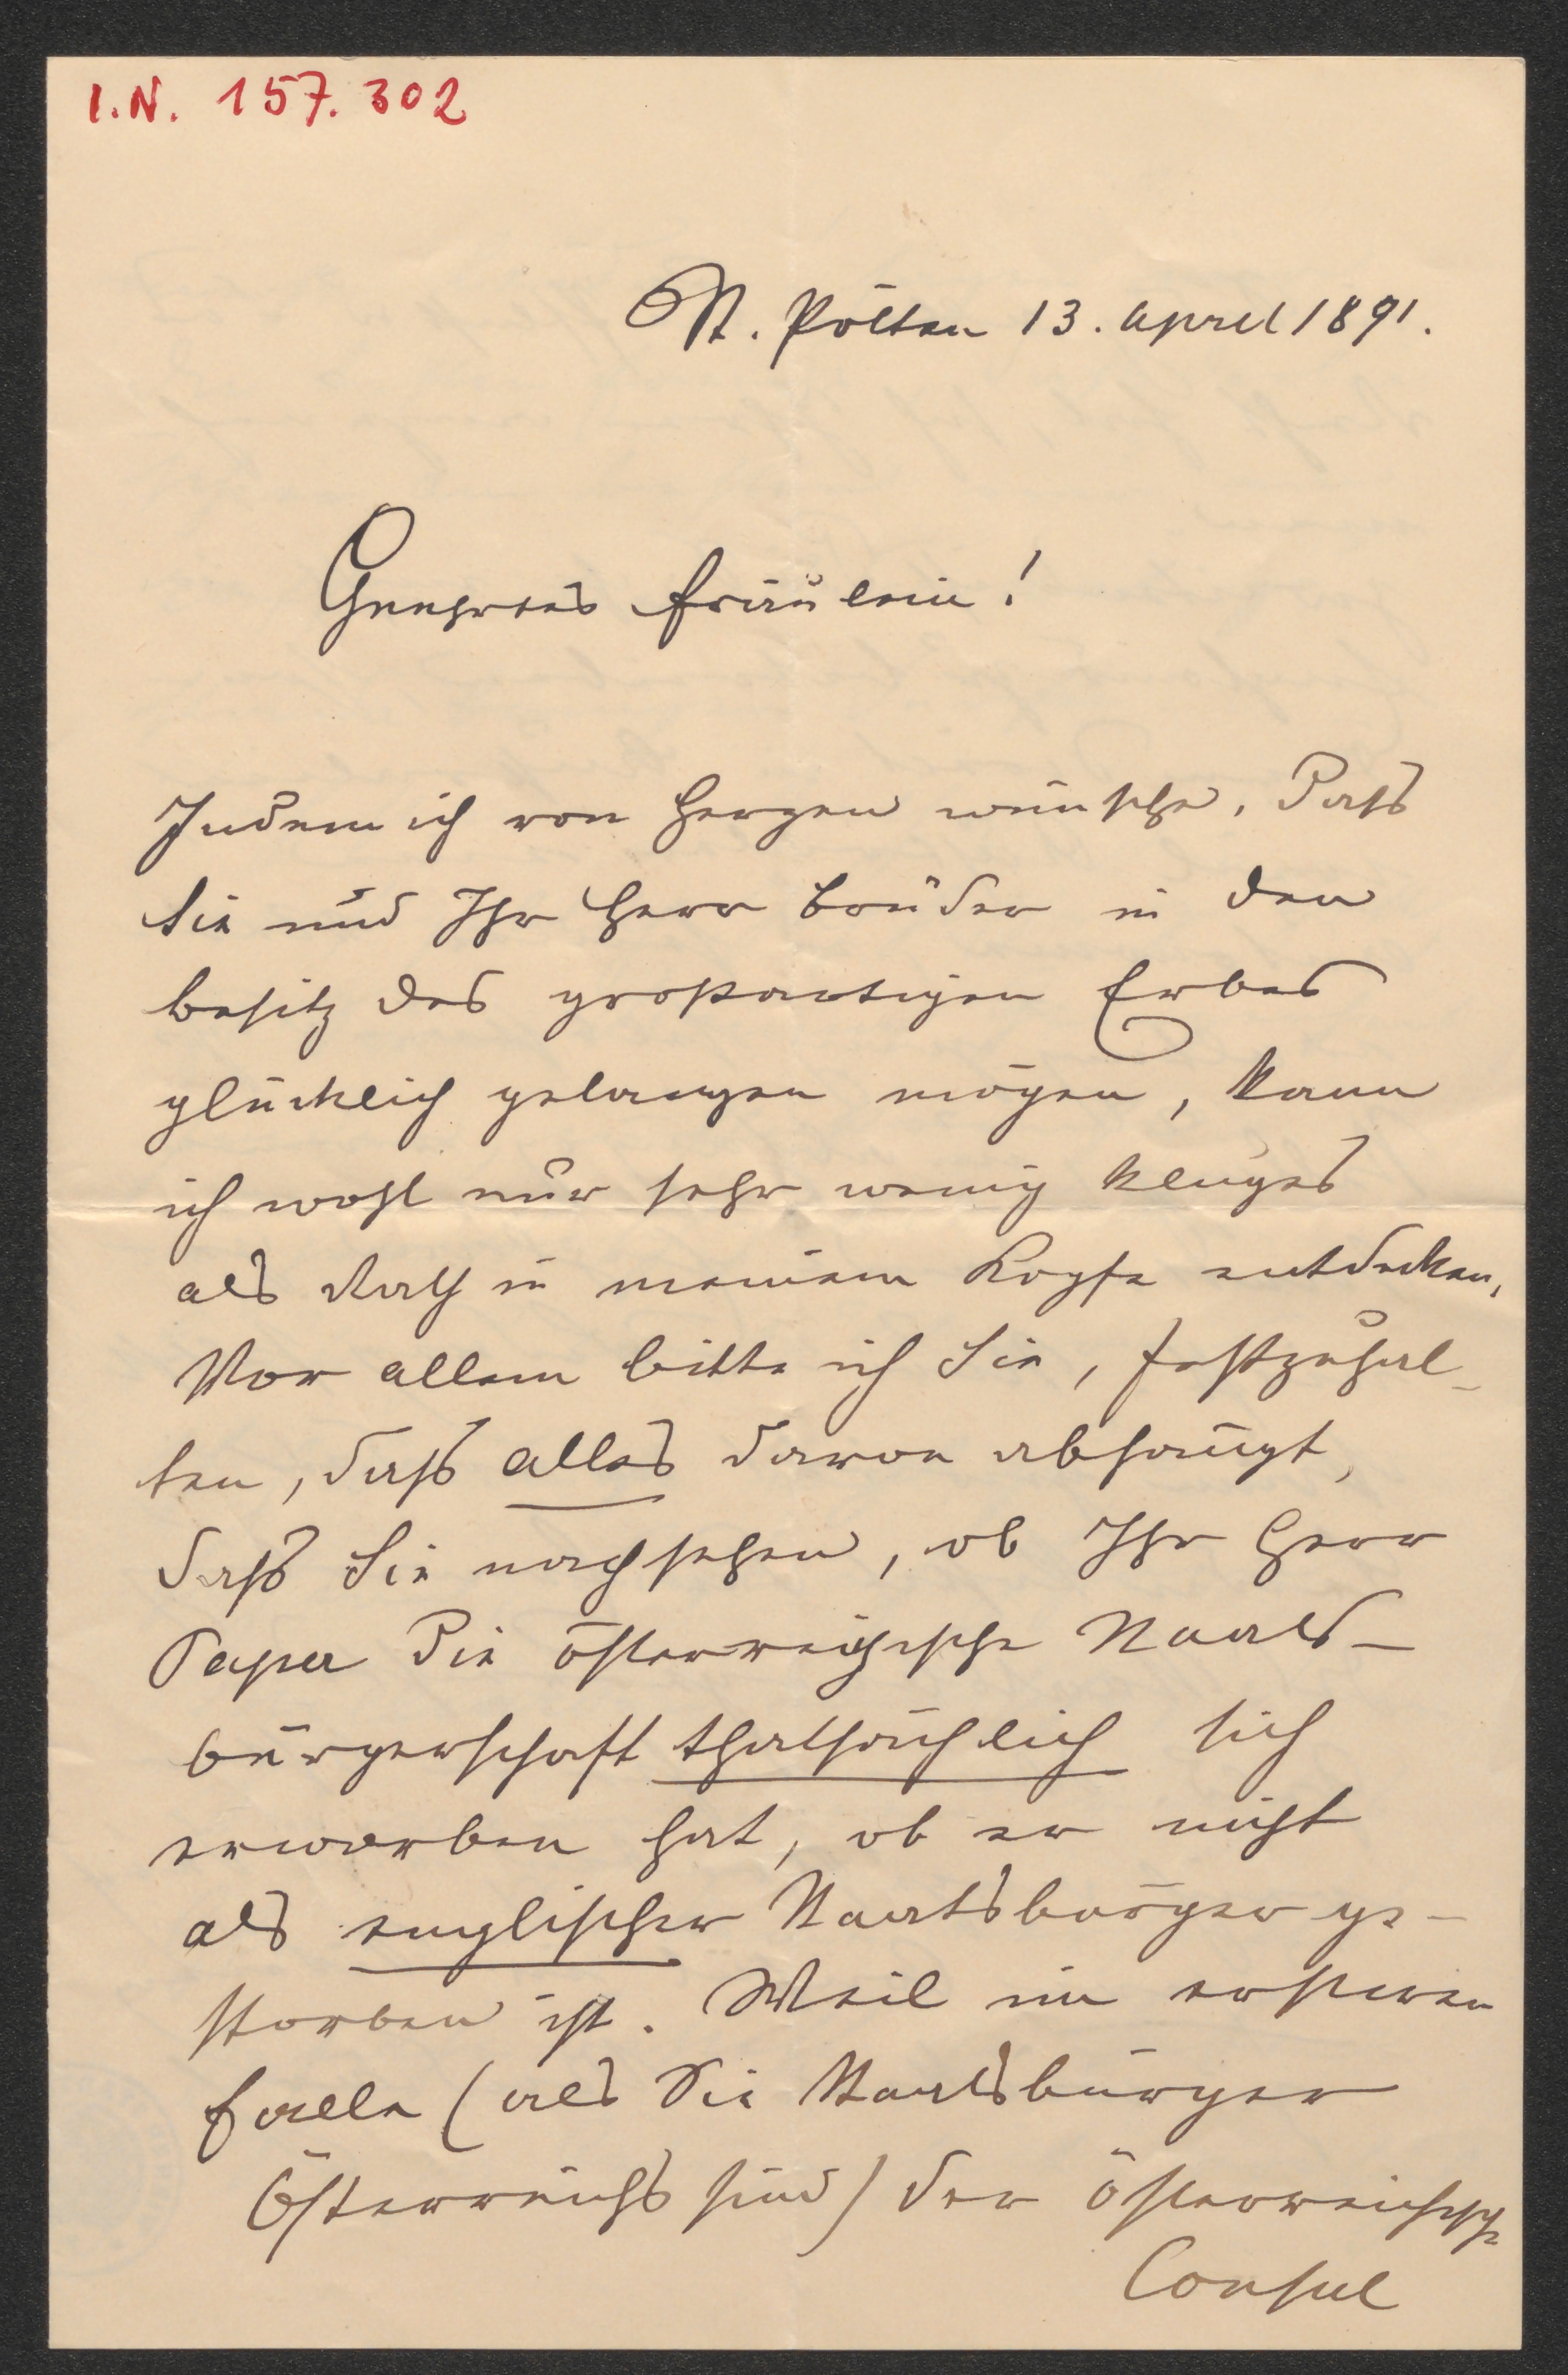 I.N. 157.302
St. Pölten 13. April 1891.
Geehrtes Fräulein!
Indem ich von Herzen wünsche, dass
Sie und Ihr Herr Bruder in den
Besitz des großartigen Erbes
glücklich gelangen mögen, kann
ich wohl nur sehr wenig kluges
als Rath in meinem Kopfe entdecken,
Vor allem bitte ich Sie, festzuhal-
ten, dass alles davon abhängt,
dass Sie nachsehen, ob Ihr Herr
Papa die österreichische Staats-
bürgerschaft thatsächlich sich
erworben hat, ob er nicht
als englischer Staatsbürger ge-
storben ist. Weil im ersteren
Falle (als Sie Staatsbürger
Österreichs sind) der österreichische
Consul